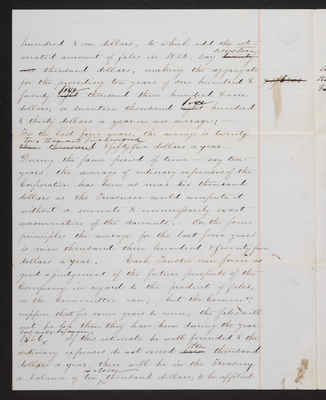 hundred & one dollars, to which add the esti-
seventeen
mated amount of sales in 1866, say
thousand dollars, making the aggregate
for the preceding ten years of one hundred &
five
seventy thousand three hundred
five
dollars, or seventeen thousand hundred
& thirty dollars a year on an average;
For the last four years, the average is twenty
two thousand four hundred
& fifty four dollars a year.
During the same period of time say ten
years, the average of ordinary expenses of the
Corporation has been as near six thousand
dollars as the Treasurer could compute it
without a minute & unnecessarily exact
examination of the accounts. On the same
principles, the average for the last four years
is nine thousand three hundred & seventy five
dollars a year. Each Trustee can form as
good a judgement of the future prospects of the
Company in regard to the product of sales,
as the Committee can; but the Committee
suppose that for some years to come, the sales will
not be less than they have been during the year
now nearly expiring
1866. If this estimate be well founded & the
ten
ordinary expenses do not exceed thousand
dollars a year, there will be in the Treasury
a balance of ten thousand dollars, to be applied